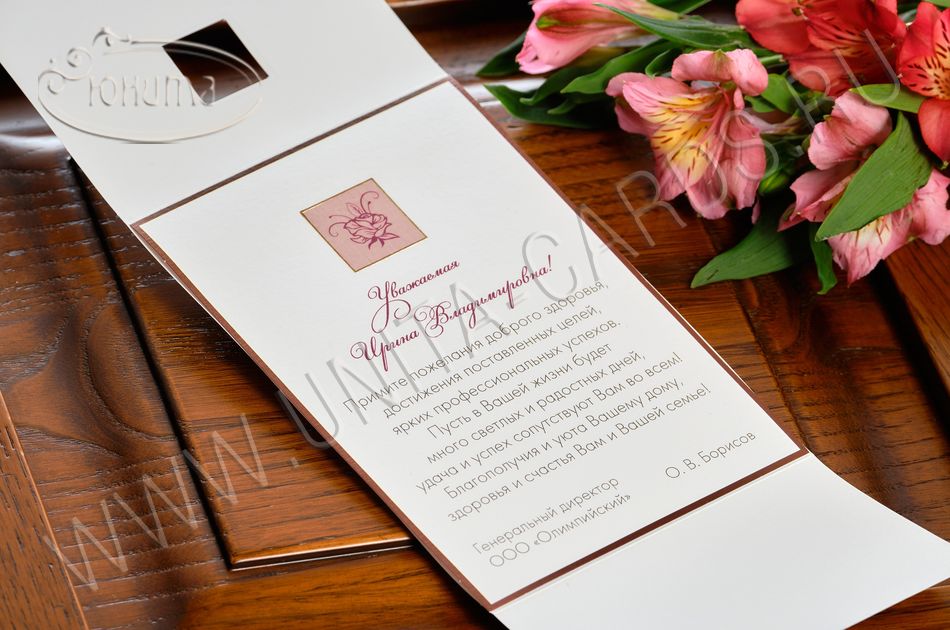 Юнита
Уважаемая
Ирина Владимировна!
Примите пожелания доброго здоровья,
достижения поставленных целей,
ярких профессиональных успехов.
Пусть в Вашей жизни будет
много светлых и радостных дней,
удача и успех сопутствуют Вам во всем!
Благополучия и уюта Вашему дому,
здоровья и счастья Вам и Вашей семье!
Генеральный директор
ООО «Олимпийский»
О. В. Борисов
WWW.UNITA-CARDS.RU